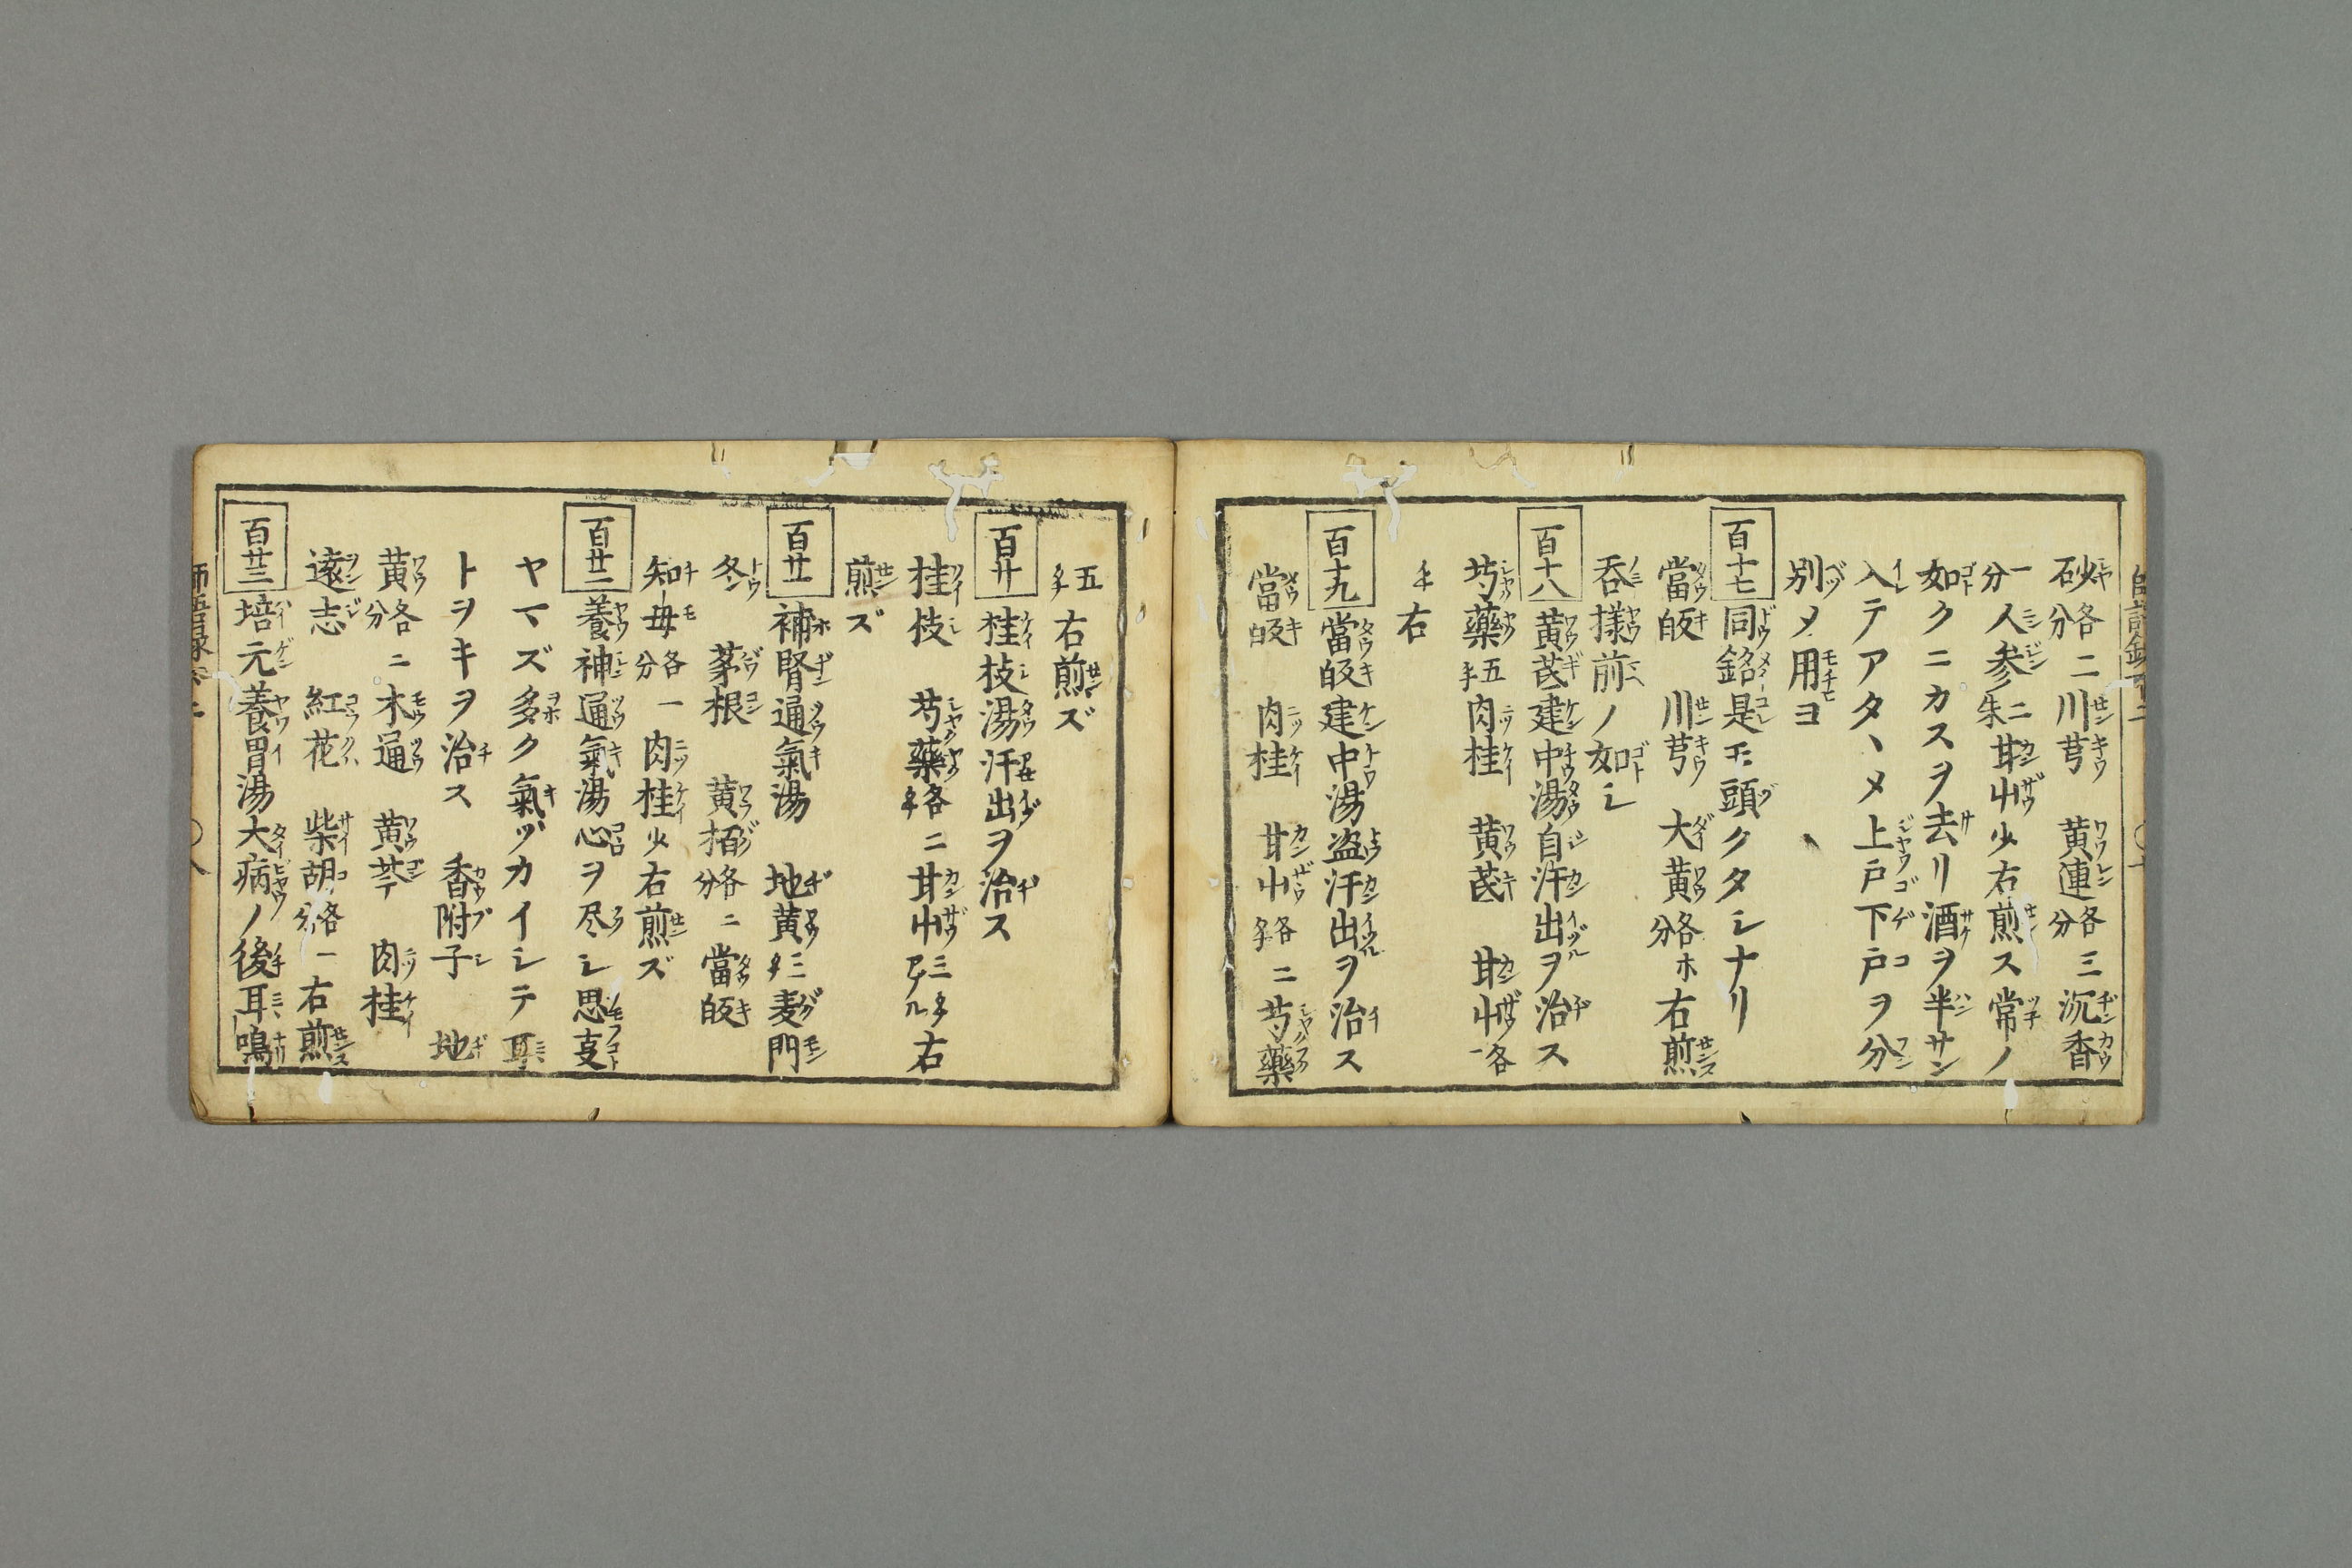 砂各分二川芎 黄連各分三沉香
一分人参二朱甘艸少右煎ス常ノ
如クニカスヲ去リ酒ヲ半サン
入テアタヽメ上戸下戸ヲ分
別メ用ヨ
百十七 同銘是モ頭クタシナリ
當皈 川芎 大黄各分ホ右煎
呑様前ノ如シ
百十八 黄芪建中湯自汗出ヲ治ス
芍藥五 肉桂 黄芪 甘艸各一
右
百十九 當皈建中湯盗汗出ヲ治ス
當皈 肉桂 甘艸各二芍藥
五 右煎ズ
百廿 桂枝湯汗出ヲ治ス
桂枝 芍藥各二甘艸三 右
煎ズ
百廿一 補腎通氣湯 地黄三麦門
冬 茅根 黄栢各分二當皈
知母各分一肉桂少右煎ズ
百廿二 養神通氣湯心ヲ尽シ思
ヤマズ多ク氣ヅカイシテ耳
トヲキヲ治ス 香附子 地
黄各分二木通 黄芩 肉桂
遠志 紅花 柴胡各分一右煎
百廿三 培元養胃湯大病ノ後耳鳴